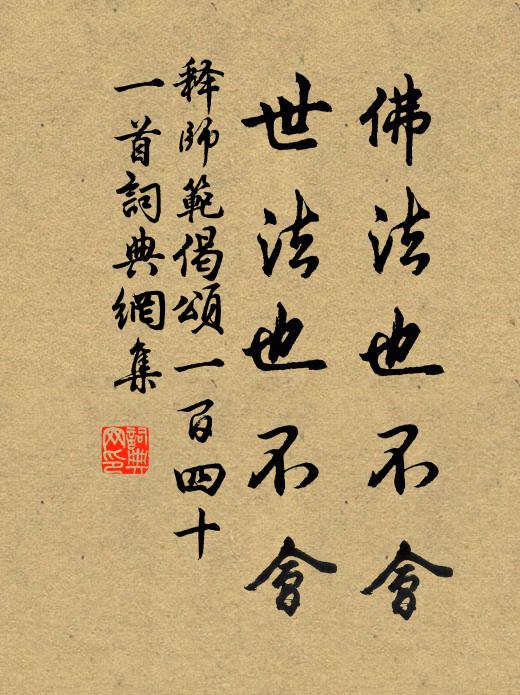 佛法也不會
世法也不會
释師範偈頌一百四十
一首詞典網集
詞典
网印